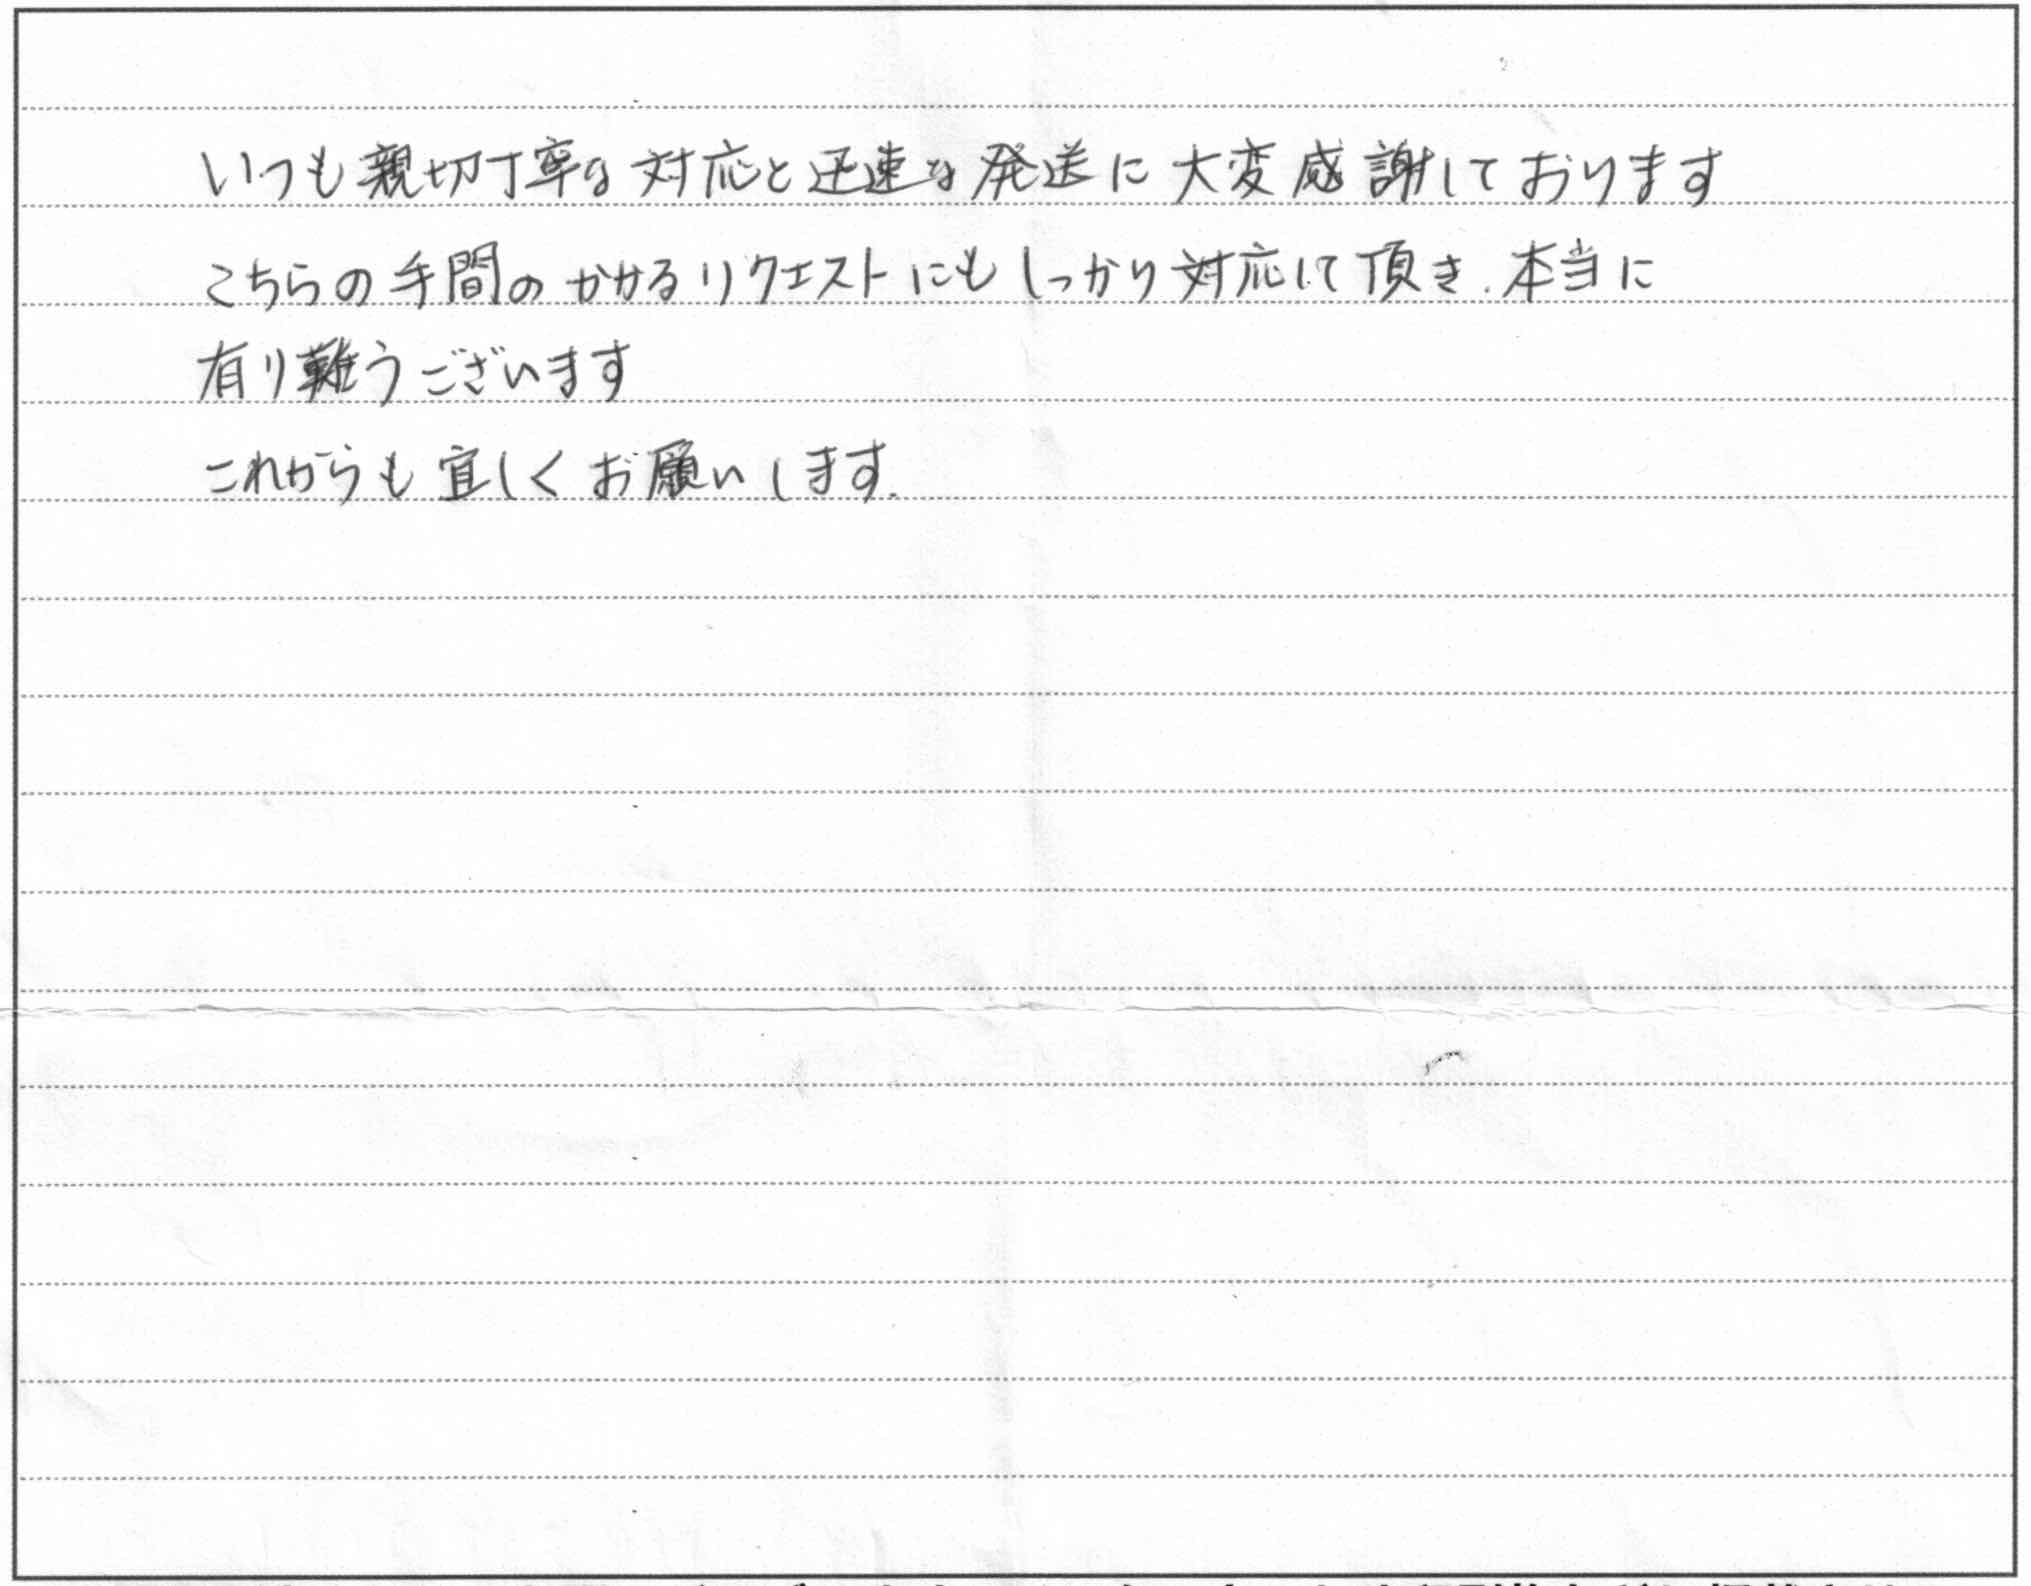 いつも親切丁寧な対応と迅速な発送に大変感謝しております
こちらの手間のかかるリクエストにもしっかり対応して頂き、本当に
有り難うございます
これからも宜しくお願いします。